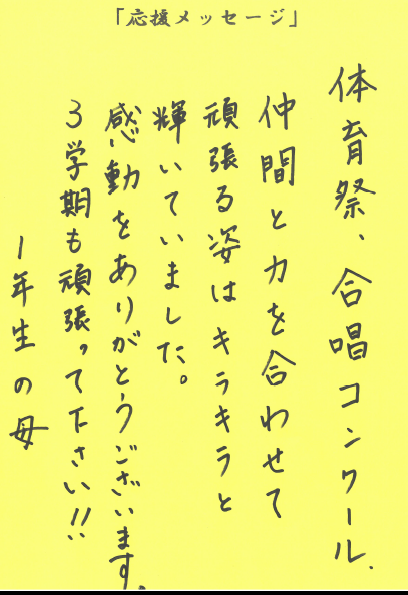 「応援メッセージ」
体育祭、合唱コンクール.
仲間と力を合わせて
頑張る姿はキラキラと
輝いていました。
感動をありがとうございます.
3学期も頑張って下さい!!
1年生の母